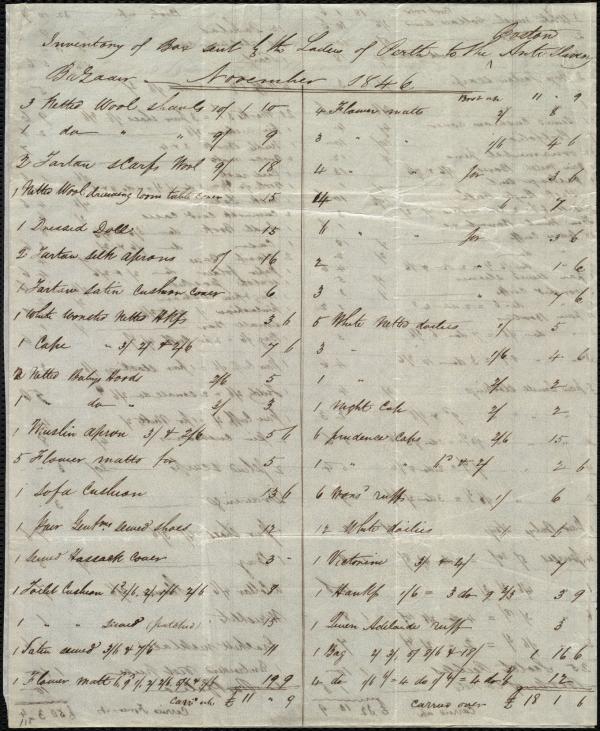 Inventory of Box sent by the Ladies of Perth to the Boston Anti Slavery
Bazaar November 1846
3 Netted Wool shawls 10/ 1 10
1 do " " 9/ 9
2 Tartan scarfs Wool 9/ 18
1 Netted Wool drawing room table cover 15
1 Dressed Doll 15
2 Tartan silk aprons 8/ 16
1 Tartan satin cushion cover 6
1 White worsted Netted Hkfs 3 6
1 Cape " 3/ 2/ & 2/6 7 6
2 Netted Babys Hoods 2/6 5
1 " do " 3/ 3
1 Muslin apron 3/ & 2/6 5 6
5 Flower matts for 5
1 Sofa Cushion 13 6
1 pair Gentmns sewed shoes 12
1 sewed Hassack Cover 3 -
1 Toilet Cushion 2/6 8
1 " " sewed 15
1 Saten sewed 3/6 & 7/6 11
1 Flower matt 19 9
Carrd over £ 11 " 9
Brot over 11 " 9
4 Flower matts 2/ 8
3 " " 1/6 4 6
4 " " for 3 6
14 " " 7
6 " " for 3 6
2 " " 1 6
3 " " 7 6
5 White Netted doilies 1/ 5
3 " " 1/6 4 6
1 " " 2/ 2
1 Night Cap 2/ 2
6 prudence Caps 2/6 15
1 " " 2 6
6 Womns ruffs 1/ 6
12 White doilies 6
1 Victorine 3/ & 4/ 7
1 Hankf 1/6 = 3 do 9 2/3 3 9
1 Queen Adelaide ruff 3
1 Bag 1 16 6
4 do 12
Carrd over £ 18 1 6